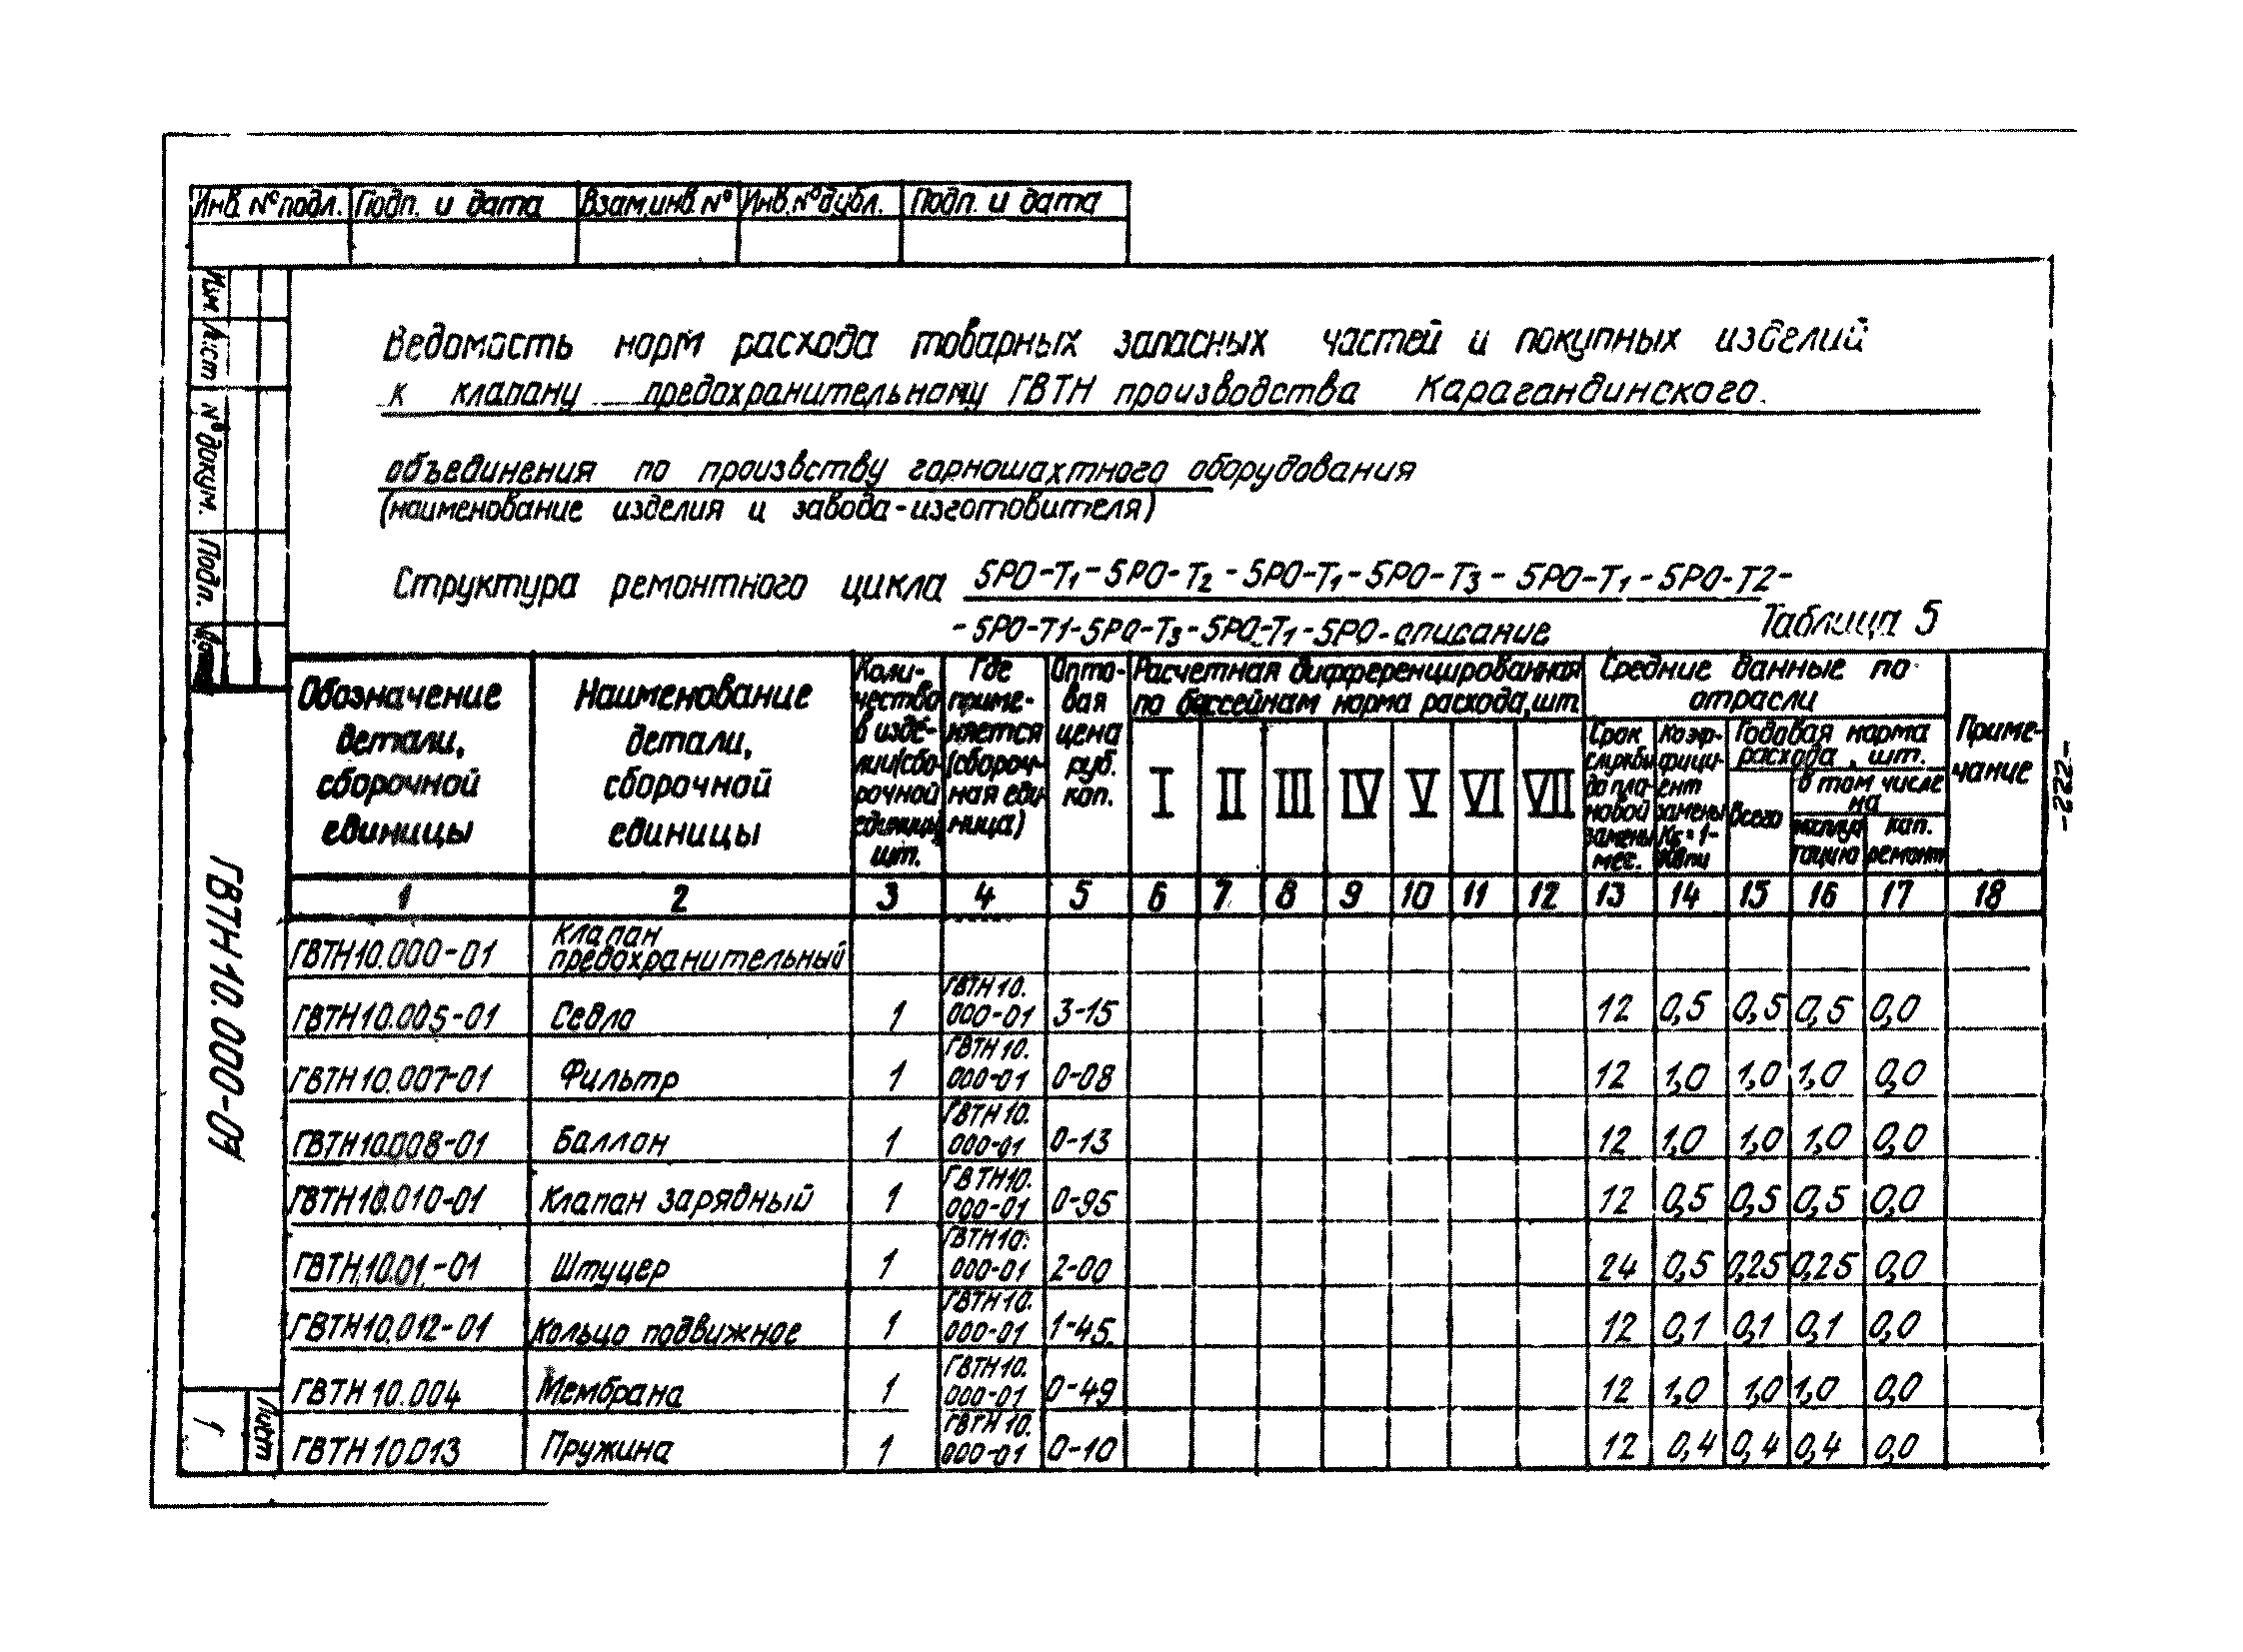 Инв. № подл. Подп. и дата Взам.инв.№ Инв.№дубл. Подп. и дата
Изм. Лист № докум. Подп.
Ведомость норм расхода товарных запасных частей и покупных изделий
к клапану предохранительному ГВТН производства Карагандинского.
объединения по произвству горношахтного оборудования
(наименование изделия и завода-изготовителя)
Структура ремонтного цикла 5РО-Т1-5РО-Т2-5РО-Т1-5РО-Т3-5РО-Т1-5РО-Т2-
-5РО-Т1-5РО-Т3-5РО-Т1-5РО-списание
Таблица 5
Обозначение
детали,
сборочной
единицы
Наименование
детали,
сборочной
единицы
Коли-
чество
в изде-
лии(сбо-
рочной
единицы)
шт.
Где
приме-
няется
(сбороч-
ная еди-
ница)
Опто-
вая
цена
руб.
коп.
Расчетная дифференцированная
по бассейнам норма расхода,шт.
I II III IV V VI VII
Средние данные по
отрасли
Срок
службы
до пла-
новой
замены
мес.
Коэф-
фици-
ент
замены
Годовая норма
расхода, шт.
всего
в том числе
на
кап.
ремонт
Приме-
чание
1 2 3 4 5 6 7 8 9 10 11 12 13 14 15 16 17 18
ГВТН10.000-01 Клапан
предохранительный
ГВТН10.005-01 Седло 1 ГВТН10.
000-01 3-15 12 0,5 0,5 0,5 0,0
ГВТН10.007-01 Фильтр 1 ГВТН10.
000-01 0-08 12 1,0 1,0 1,0 0,0
ГВТН10.008-01 Баллон 1 ГВТН10.
000-01 0-13 12 1,0 1,0 1,0 0,0
ГВТН10.010-01 Клапан зарядный 1 ГВТН10.
000-01 0-95 12 0,5 0,5 0,5 0,0
ГВТН10.01-01 Штуцер 1 ГВТН10.
000-01 2-00 24 0,5 0,25 0,25 0,0
ГВТН10.012-01 Кольцо подвижное 1 ГВТН10.
000-01 1-45 12 0,1 0,1 0,1 0,0
ГВТН 10.004 Мембрана 1 ГВТН10.
000-01 0-49 12 1,0 1,0 1,0 0,0
ГВТН 10.013 Пружина 1 ГВТН 10.
000-01 0-10 12 0,4 0,4 0,4 0,0
ГВТН 10.000-01
Лист
1
-222-